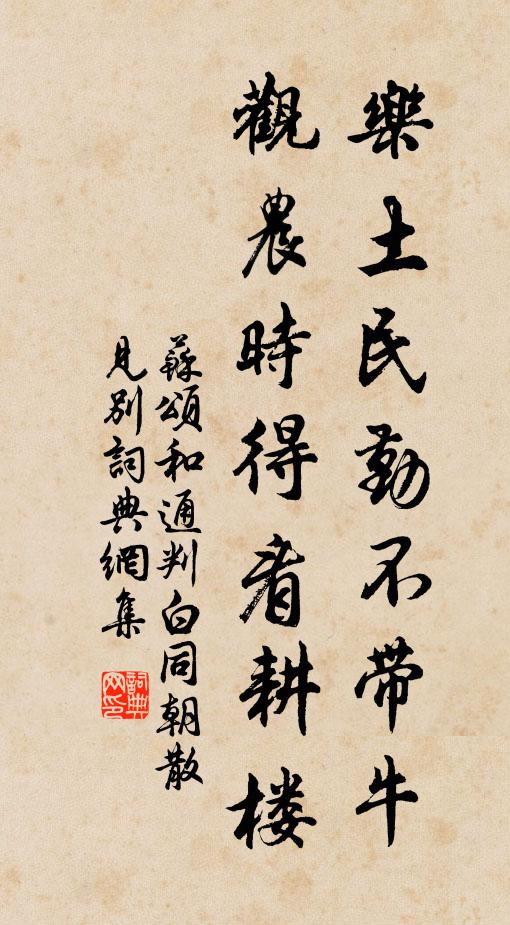 樂土民勤不带牛
觀農時得看耕楼
蘇頌和通判白同朝散
見别詞典網集
詞典网印